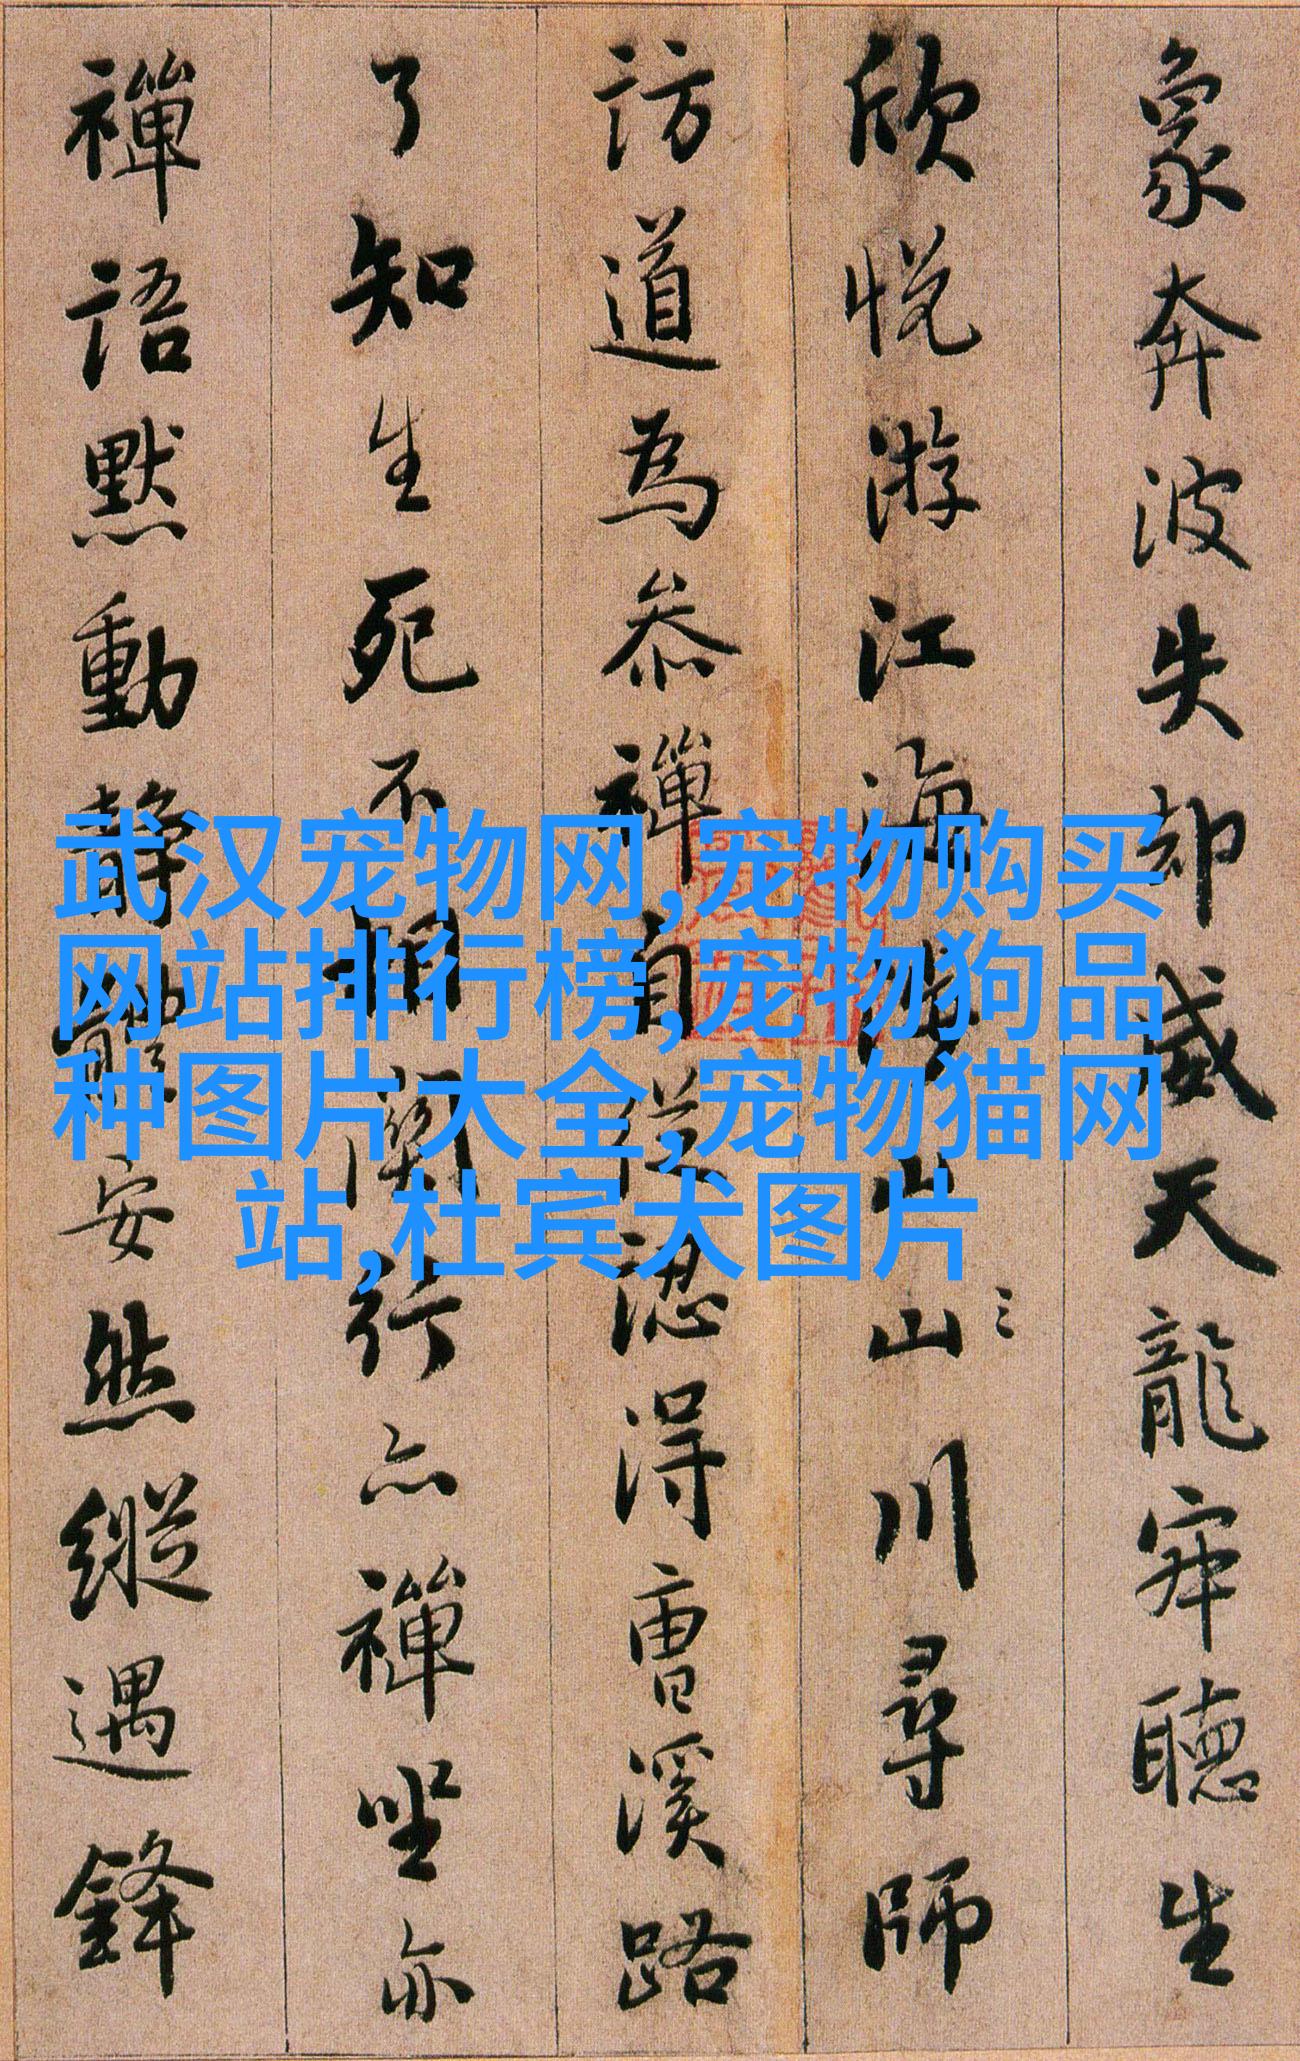 象奔波失却威天龍寂聽生
欣悅游江海山山川尋師
訪道為叅禪自從認得曹溪路
了知生死不相關行亦禪坐亦
禪語默動靜體安然縱遇鋒
武汉宠物网,宠物购买
网站排行榜,宠物狗品
种图片大全,宠物猫网
站,杜宾犬图片